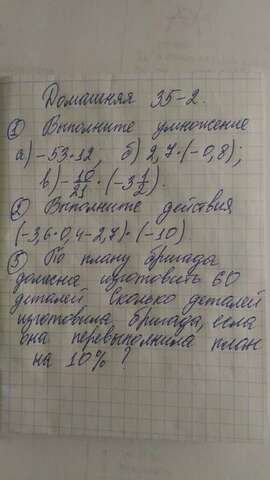 Домашняя 35-2.
① Выполните умножение
а) -53·12; б) 2,7·(-0,8);
в) -10/21·(-3 1/2).
② Выполните действия
(-3,6·0,4-2,7)·(-10)
③ По плану бригада
должна изготовить 60
деталей. Сколько деталей
изготовила бригада, если
она перевыполнила план
на 10%?